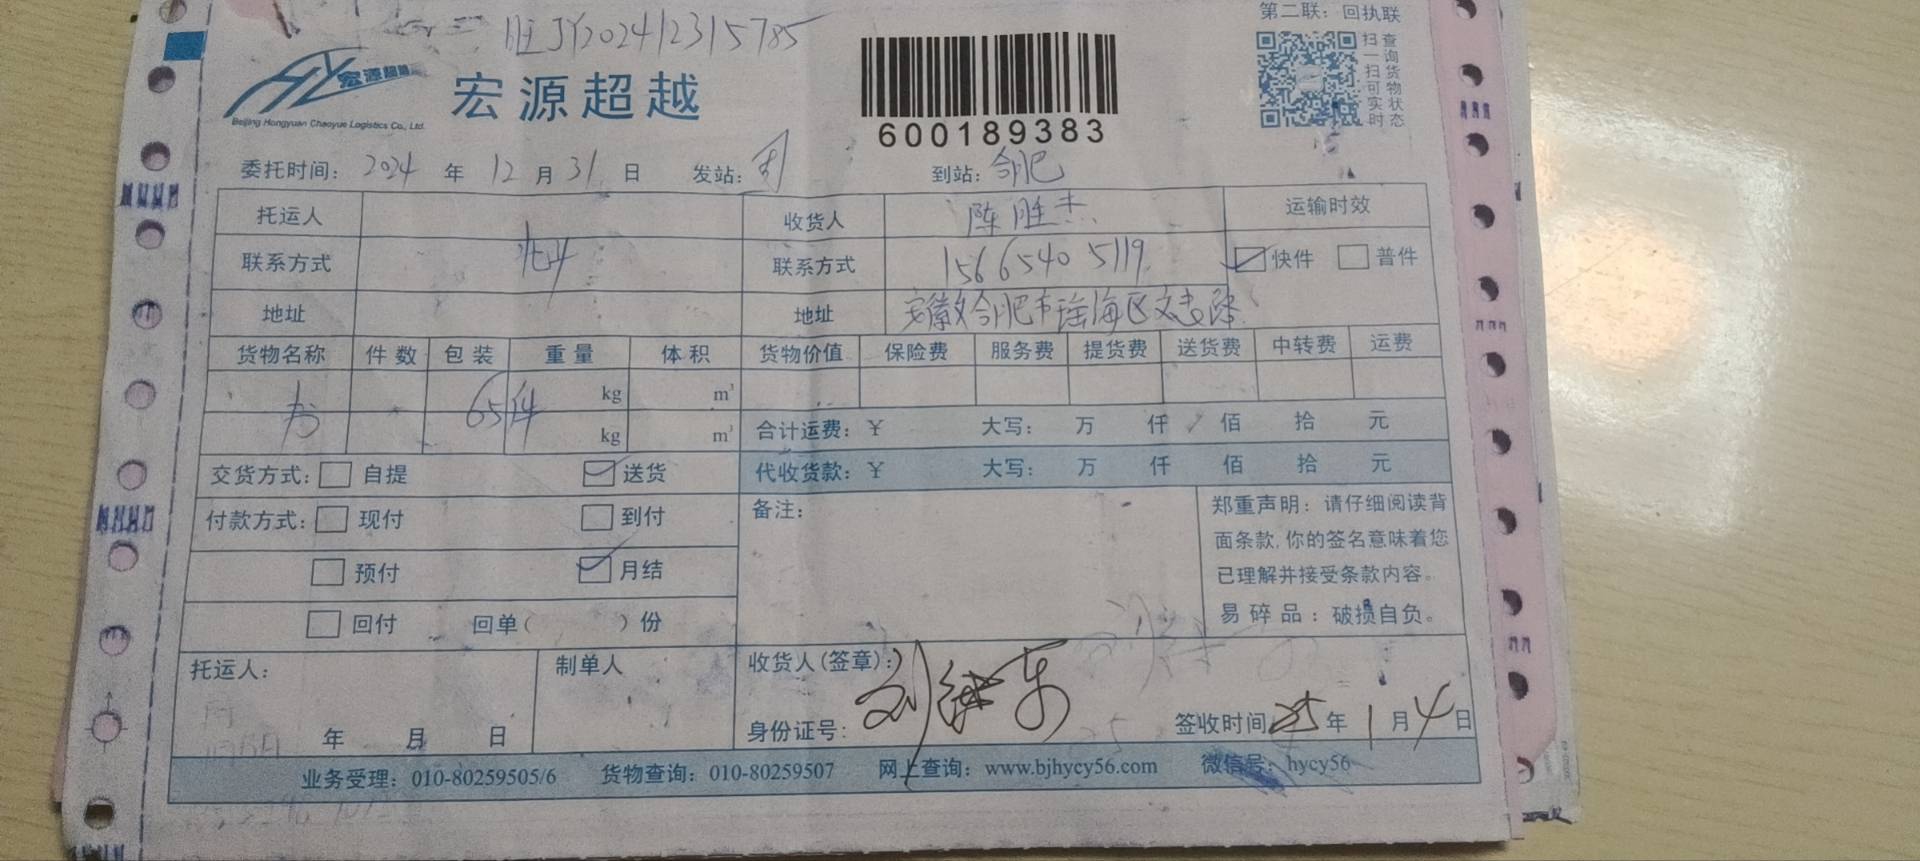 第二联：回执联
JY202412315785
宏源超越
Beijing Hongyuan Chaoyue Logistics Co., Ltd.
宏源超越
600189383
扫一扫可实时
查询货物状态
委托时间： 2024 年 12 月 31 日 发站： 到站：合肥
托运人 收货人 陈胜杰 运输时效
联系方式 联系方式 15665405119 快件 普件
地址 地址 安徽合肥市瑶海区文忠路
货物名称 件数 包装 重量 体积 货物价值 保险费 服务费 提货费 送货费 中转费 运费
书 65件 kg m³
kg m³ 合计运费：￥ 大写： 万 仟 佰 拾 元
交货方式： 自提 送货 代收货款：￥ 大写： 万 仟 佰 拾 元
付款方式： 现付 到付 备注：
预付 月结
回付 回单（ ）份
郑重声明：请仔细阅读背
面条款,你的签名意味着您
已理解并接受条款内容。
易碎品：破损自负。
托运人： 制单人 收货人(签章)：刘继东
年 月 日 身份证号： 签收时间 25 年 1 月 4 日
业务受理：010-80259505/6 货物查询：010-80259507 网上查询：www.bjhycy56.com 微信号：hycy56